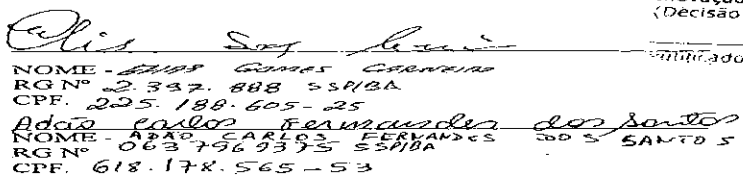 (Decisão
NOME - ELIAS GOMES CARNEIRO
RG Nº 2.397.888 SSP/BA
CPF. 225.188.605-25
Adão Carlos Fernandes dos Santos
NOME - ADÃO CARLOS FERNANDES DOS SANTOS
RG Nº 0637969375 SSP/BA
CPF. 618.178.565-53